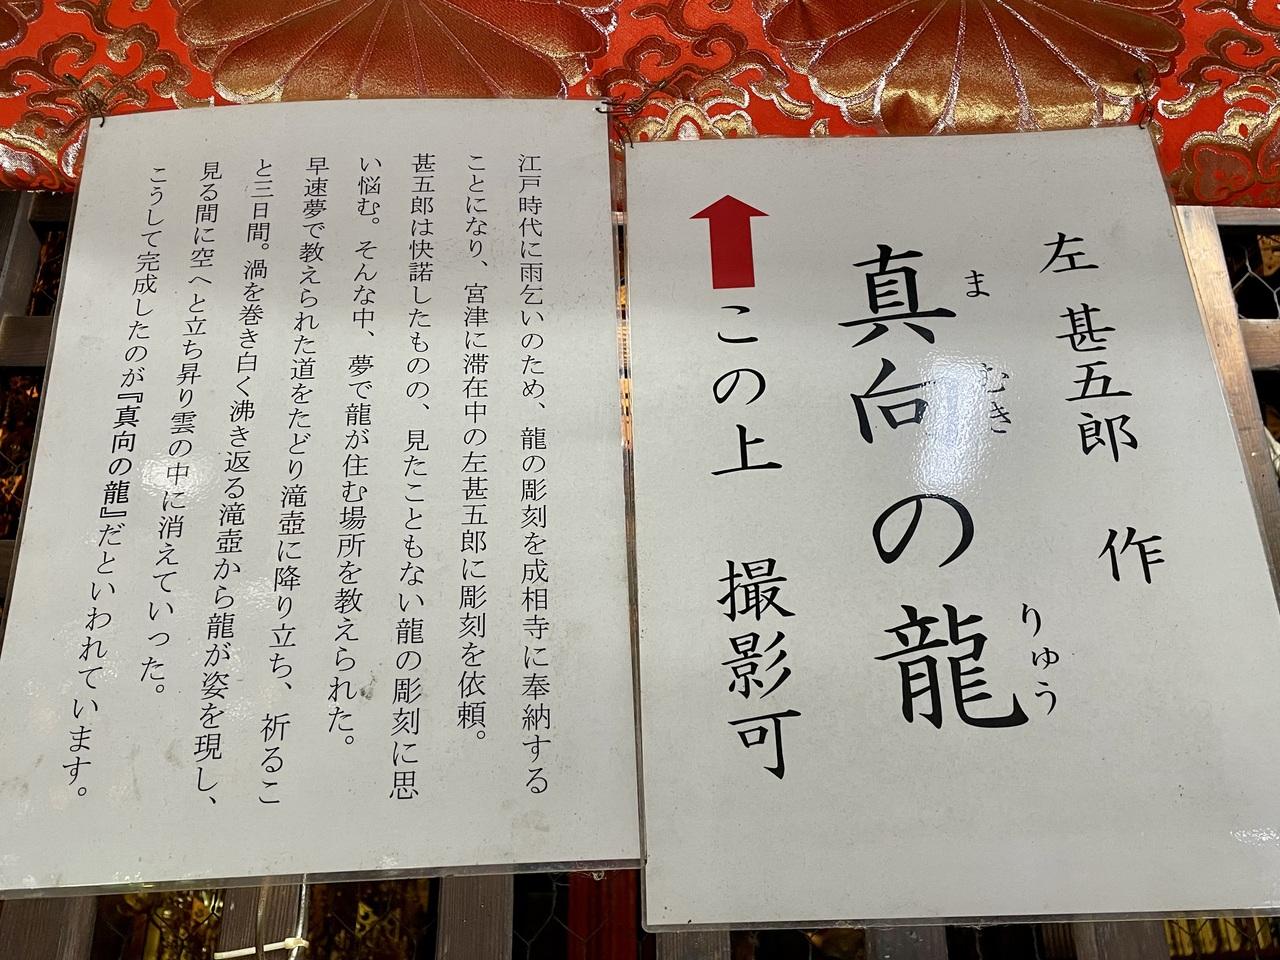 左 甚五郎 作
真向の龍
まむき りゅう
この上 撮影可
江戸時代に雨乞いのため、龍の彫刻を成相寺に奉納する
ことになり、宮津に滞在中の左甚五郎に彫刻を依頼。
甚五郎は快諾したものの、見たこともない龍の彫刻に思
い悩む。そんな中、夢で龍が住む場所を教えられた。
早速夢で教えられた道をたどり滝壺に降り立ち、祈るこ
と三日間。渦を巻き白く沸き返る滝壺から龍が姿を現し、
見る間に空へと立ち昇り雲の中に消えていった。
こうして完成したのが『真向の龍』だといわれています。